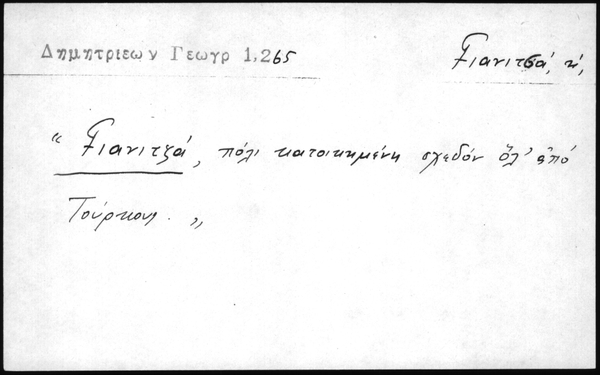 Δημητριεων Γεωγρ 1,265
Γιανιτσά, ἡ,
“ Γιανιτζά, πόλι κατοικημένη σχεδόν ὅλ' ἀπό
Τούρκους. „